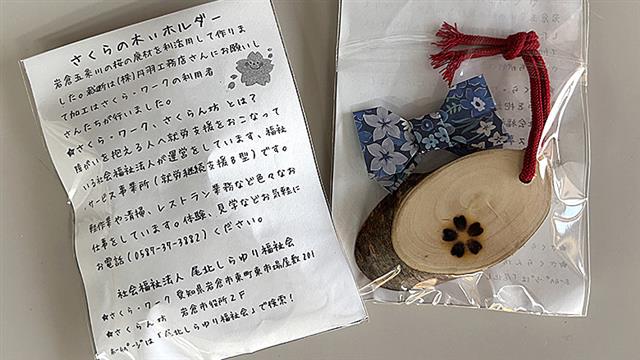 さくらの木いホルダー
岩倉五条川の桜の廃材を利活用して作りま
した。裁断は(株)丹羽工務店さんにお願いし
て加工はさくら・ワークの利用者
さんたちが行いました。
★さくら・ワーク、さくらん坊 とは?
障がいを抱える人へ就労支援をおこなって
いる社会福祉法人が運営をしています、福祉
サービス事業所(就労継続支援B型)です。
軽作業や清掃、レストラン業務など色々なお
仕事をしています。体験、見学などお気軽に
お電話(0587-37-3882)ください。
社会福祉法人 尾北しらゆり福祉会
★さくら・ワーク 愛知県岩倉市東町東市場屋敷201
★さくらん坊 岩倉市役所2F
ホームページは「尾北しらゆり福祉会」で検索!